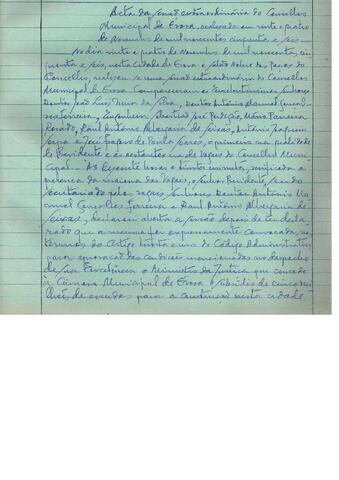 Acta da sessão extraordinária do Conselho
Municipal de Évora, realizada em vinte e quatro
de Novembro de mil novecentos cinquenta e seis.
No dia vinte e quatro de Novembro de mil novecentos, cin-
quenta e seis, nesta cidade de Évora e Salão Nobre dos Paços do
Concelho, realizou-se uma sessão extraordinária do Conselho
Municipal de Évora. Compareceram os Excelentíssimos Senhores
Doutor José Luis da Silva, Doutor António Manuel
Ferreira, Engenheiro José Perdigão, Mário Parreira
Rosado, Raul António Albergaria de Seixas, António Joaquim
e José de Paula Soares, o primeiro na qualidade
de Presidente e os restantes na de Vogais do Conselho Muni-
cipal. — Às dezassete horas e trinta minutos, verificada a
presença da maioria dos Vogais, o Senhor Presidente, sendo
secretariado pelos vogais Senhores Doutor António Ma-
nuel Ferreira e Raul António Albergaria de
Seixas, declarou aberta a sessão depois de ter decla-
rado que a mesma foi expressamente convocada, nos
termos do Artigo trinta e um do Código Administrativo
para apreciação das condições mencionadas no despacho
de Sua Excelência o Ministro da Justiça que concede
à Câmara Municipal de Évora o subsídio de cinco mil
de escudos para a cadeia nesta cidade.